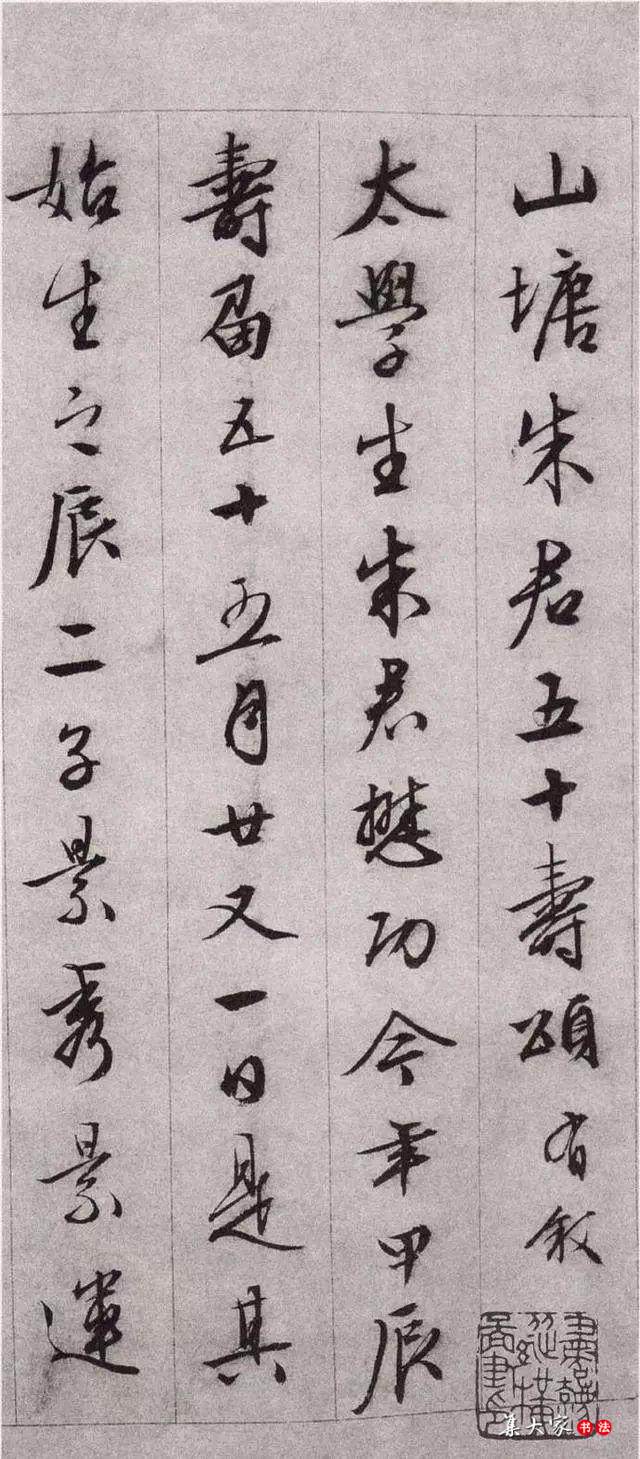 山塘朱君五十壽頌有敘
太學生朱君懋功今年甲辰
壽届五十五月廿又一日是其
始生之辰二子景秀景運
集大家书法